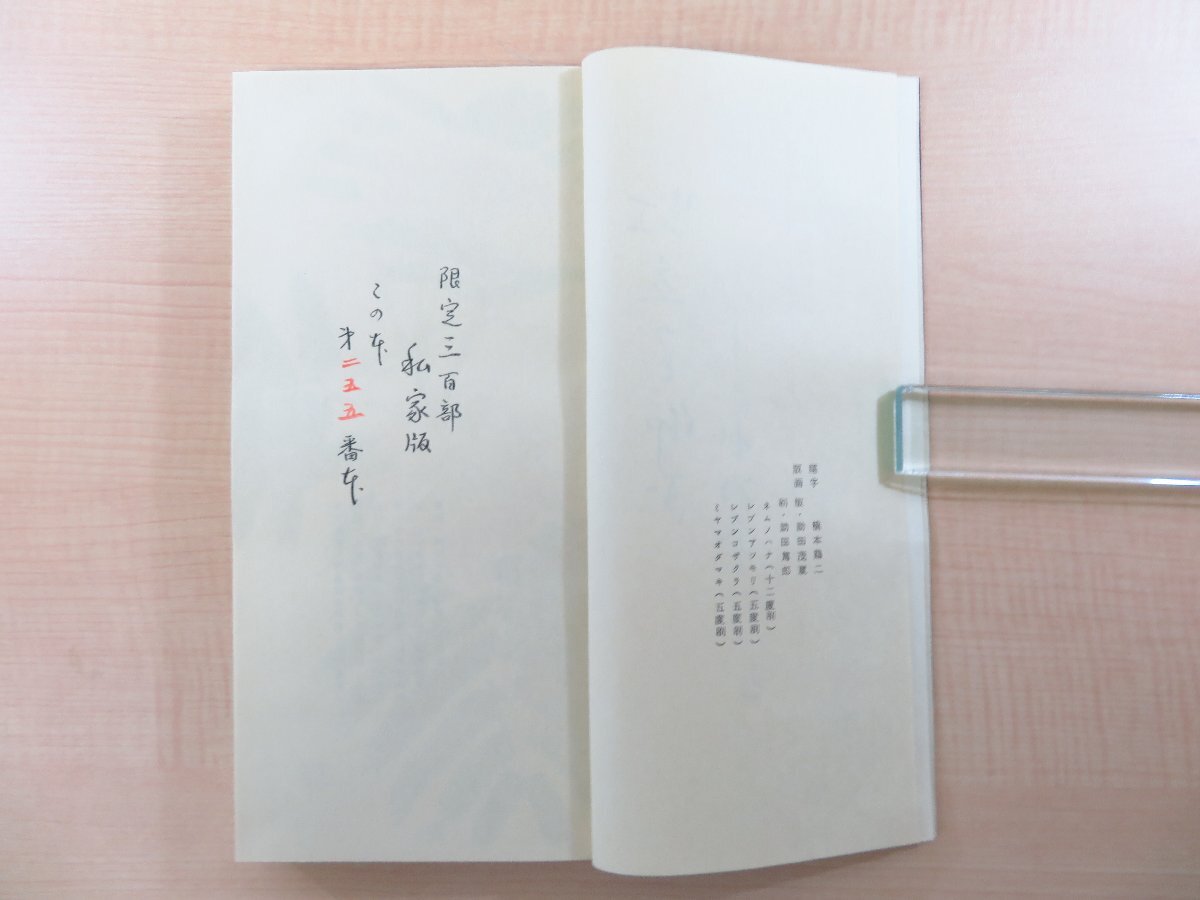 題字　橋本鶏二
版画　版・助田茂蔵
刷・助田篤郎
ネムノハナ(十二度刷)
レブンアツモリ(五度刷)
レブンコザクラ(五度刷)
ミヤマオダマキ(五度刷)
限定三百部
私家版
この本
第二五五番本